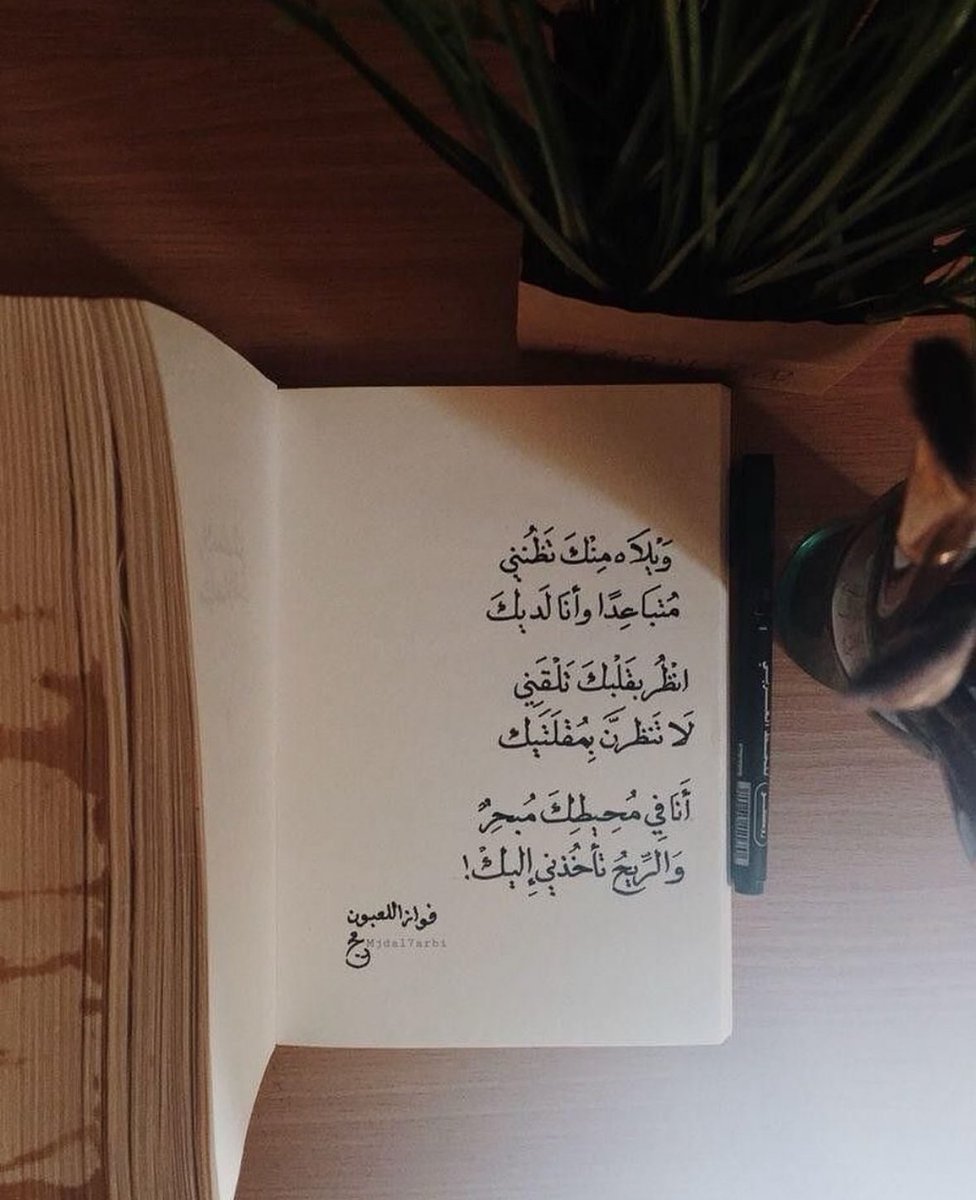 وَيْلَاه مِنْكَ تَظُنني
مُتبَاعِدًا وأنَا لَديكَ
انْظُر بقَلْبكَ تَلْقَنِي
لَا تَنظرنَّ بِمُقلَتَيك
أَنَا فِي مُحِيطِكَ مُبحِرٌ
وَالرِّيحُ تأخُذني إِليكْ!
فواز اللعبون
Mjdal7arbi